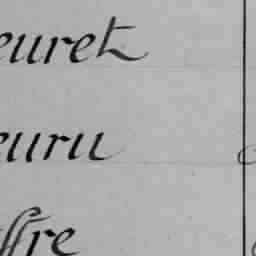 euret
euru
ffre